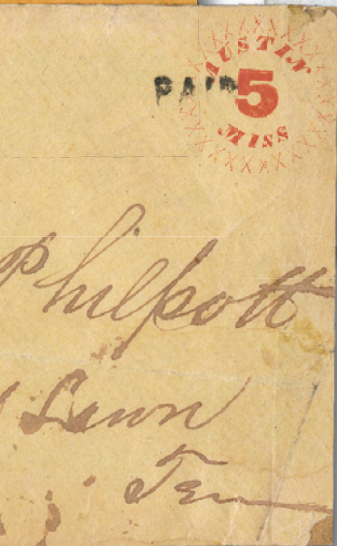 PAID
AUSTIN
5
MISS
Philpott
Lawn
Ten